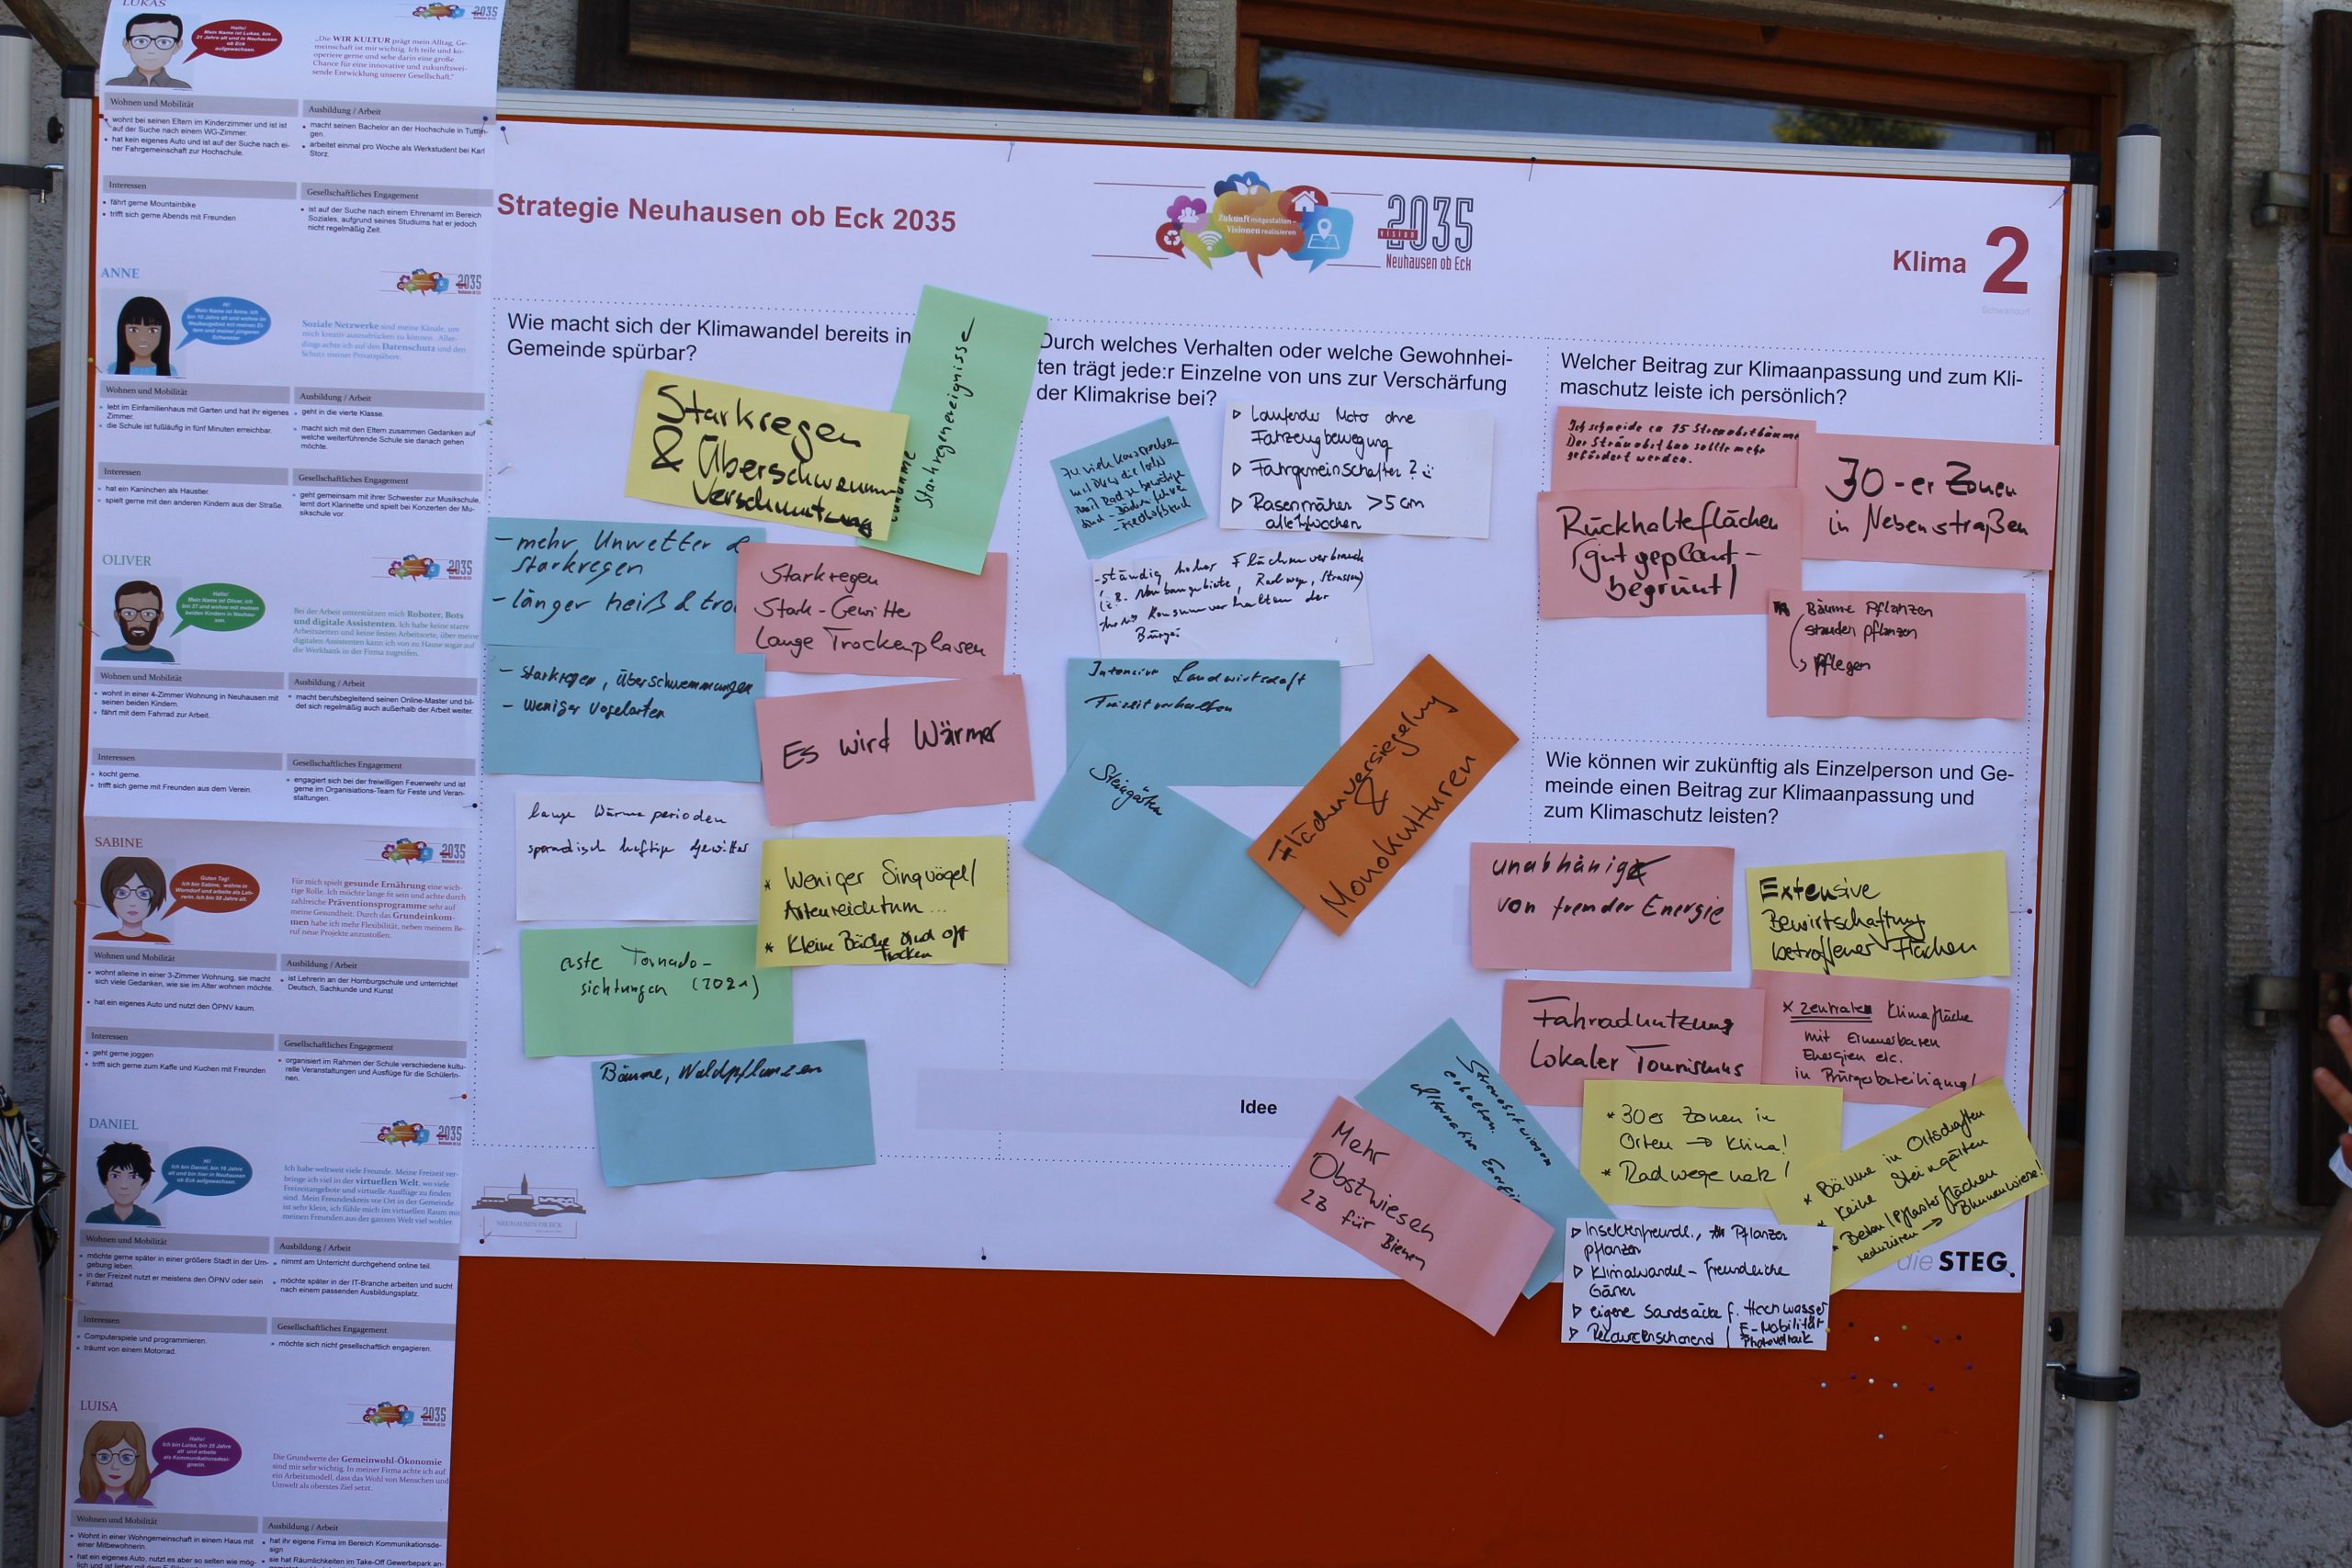 LUKAS
2035
Hallo!
Mein Name ist Lukas, bin
21 Jahre alt und in Neuhausen
ob Eck
aufgewachsen.
„Die WIR KULTUR prägt mein Alltag, Ge-
meinschaft ist mir wichtig. Ich teile und ko-
operiere gerne und sehe darin eine große
Chance für eine innovative und zukunftswei-
sende Entwicklung unserer Gesellschaft."
Wohnen und Mobilität
wohnt bei seinen Eltern im Kinderzimmer und ist ist
auf der Suche nach einem WG-Zimmer.
hat kein eigenes Auto und ist auf der Suche nach ei-
ner Fahrgemeinschaft zur Hochschule.
Ausbildung / Arbeit
macht seinen Bachelor an der Hochschule in Tuttlin-
gen.
arbeitet einmal pro Woche als Werkstudent bei Karl
Storz.
Interessen
fährt gerne Mountainbike
trifft sich gerne Abends mit Freunden
Gesellschaftliches Engagement
ist auf der Suche nach einem Ehrenamt im Bereich
Soziales, aufgrund seines Studiums hat er jedoch
nicht regelmäßig Zeit.
ANNE
2035
Soziale Netzwerke sind meine Kanäle, um
mich kreativ auszudrücken zu können. Aller-
dings achte ich auf den Datenschutz und den
Schutz meiner Privatsphäre.
Wohnen und Mobilität
lebt im Einfamilienhaus mit Garten und hat ihr eigenes
Zimmer.
die Schule ist fußläufig in fünf Minuten erreichbar.
Ausbildung / Arbeit
geht in die vierte Klasse.
macht sich mit den Eltern zusammen Gedanken auf
welche weiterführende Schule sie danach gehen
möchte.
Interessen
hat ein Kaninchen als Haustier.
spielt gerne mit den anderen Kindern aus der Straße.
Gesellschaftliches Engagement
geht gemeinsam mit ihrer Schwester zur Musikschule,
lernt dort Klarinette und spielt bei Konzerten der Mu-
sikschule vor.
OLIVER
2035
Hallo!
Mein Name ist Oliver, ich
bin 37 und wohne mit meinen
beiden Kindern in Neuhau-
sen.
Bei der Arbeit unterstützen mich Roboter, Bots
und digitale Assistenten. Ich habe keine starre
Arbeitszeiten und keine festen Arbeitsorte, über meine
digitalen Assistenten kann ich von zu Hause sogar auf
die Werkbank in der Firma zugreifen.
Wohnen und Mobilität
wohnt in einer 4-Zimmer Wohnung in Neuhausen mit
seinen beiden Kindern.
fährt mit dem Fahrrad zur Arbeit.
Ausbildung / Arbeit
macht berufsbegleitend seinen Online-Master und bil-
det sich regelmäßig auch außerhalb der Arbeit weiter.
Interessen
kocht gerne.
trifft sich gerne mit Freunden aus dem Verein.
Gesellschaftliches Engagement
engagiert sich bei der freiwilligen Feuerwehr und ist
gerne im Organisations-Team für Feste und Veran-
staltungen.
SABINE
2035
Guten Tag!
Ich bin Sabine, wohne in
Worndorf und arbeite als Leh-
rerin. Ich bin 58 Jahre alt.
Für mich spielt gesunde Ernährung eine wich-
tige Rolle. Ich möchte lange fit sein und achte durch
zahlreiche Präventionsprogramme sehr auf
meine Gesundheit. Durch das Grundeinkom-
men habe ich mehr Flexibilität, neben meinem Be-
ruf neue Projekte anzustoßen.
Wohnen und Mobilität
wohnt alleine in einer 3-Zimmer Wohnung, sie macht
sich viele Gedanken, wie sie im Alter wohnen möchte.
hat ein eigenes Auto und nutzt den ÖPNV kaum.
Ausbildung / Arbeit
ist Lehrerin an der Homburgschule und unterrichtet
Deutsch, Sachkunde und Kunst
Interessen
geht gerne joggen
trifft sich gerne zum Kaffe und Kuchen mit Freunden
Gesellschaftliches Engagement
organisiert im Rahmen der Schule verschiedene kultu-
relle Veranstaltungen und Ausflüge für die SchülerIn-
nen.
DANIEL
2035
Hi!
Ich bin Daniel, bin 16 Jahre
alt und bin hier in Neuhausen
ob Eck aufgewachsen.
Ich habe weltweit viele Freunde. Meine Freizeit ver-
bringe ich viel in der virtuellen Welt, wo viele
Freizeitangebote und virtuelle Ausflüge zu finden
sind. Mein Freundeskreis vor Ort in der Gemeinde
ist sehr klein, ich fühle mich im virtuellen Raum mit
meinen Freunden aus der ganzen Welt viel wohler
Wohnen und Mobilität
möchte gerne später in einer größere Stadt in der Um-
gebung leben.
in der Freizeit nutzt er meistens den ÖPNV oder sein
Fahrrad.
Ausbildung / Arbeit
nimmt am Unterricht durchgehend online teil.
möchte später in der IT-Branche arbeiten und sucht
nach einem passenden Ausbildungsplatz.
Interessen
Computerspiele und programmieren.
träumt von einem Motorrad.
Gesellschaftliches Engagement
möchte sich nicht gesellschaftlich engagieren.
LUISA
2035
Hallo!
Ich bin Luisa, bin 35 Jahre
alt und arbeite
als Kommunikationsdesi-
gnerin.
Die Grundwerte der Gemeinwohl-Ökonomie
sind mir sehr wichtig. In meiner Firma achte ich auf
ein Arbeitsmodell, dass das Wohl von Menschen und
Umwelt als oberstes Ziel setzt.
Wohnen und Mobilität
Wohnt in einer Wohngemeinschaft in einem Haus mit
einer Mitbewohnerin.
hat ein eigenes Auto, nutzt es aber so selten wie mög-
Ausbildung / Arbeit
hat ihr eigene Firma im Bereich Kommunikationsde-
sign
sie hat Räumlichkeiten im Take-Off Gewerbepark an-
Strategie Neuhausen ob Eck 2035
Zukunft mitgestalten –
Visionen realisieren
2035
VISION
Neuhausen ob Eck
Klima 2
Schwandorf
Wie macht sich der Klimawandel bereits in
Gemeinde spürbar?
Starkregen
& Überschwemm-
Verschmutzung
Starkregenereignisse
- mehr Unwetter &
Starkregen
- länger heiß & tro
Starkregen
Stark-Gewitte
Lange Trockenphasen
- Starkregen, Überschwemmungen
- weniger Vogelarten
Es wird Wärmer
lange Wärmeperioden
sporadisch heftige Gewitter
* Weniger Singvögel/
Artenreichtum...
* Kleine Bäche sind oft
trocken
erste Tornado-
sichtungen (2021)
Bäume, Waldpflanzen
NEUHAUSEN OB ECK
Durch welches Verhalten oder welche Gewohnhei-
ten trägt jede:r Einzelne von uns zur Verschärfung
der Klimakrise bei?
zu viele Kurzstrecken
mit PKW die leicht
mit Rad zu bewältigen
sind
▷ Laufender Moto ohne
Fahrzeugbewegung
▷ Fahrgemeinschaften?
▷ Rasenmäher >5cm
alle 2 Wochen
- ständig hoher Flächenverbrauch
(z.B. Neubaugebiete, Radwege, Strassen)
Konsumverhalten der
Bürger
Intensive Landwirtschaft
Freizeitverhalten
Steingärten
Flächenversiegelung
&
Monokulturen
Idee
Welcher Beitrag zur Klimaanpassung und zum Kli-
maschutz leiste ich persönlich?
Ich schneide ca 15 Streuobstbäume
Der Streuobstbau sollte mehr
gefördert werden.
30-er Zonen
in Nebenstraßen
Rückhalteflächen
(gut geplant -
begrünt)
Bäume pflanzen
stauden pflanzen
pflegen
Wie können wir zukünftig als Einzelperson und Ge-
meinde einen Beitrag zur Klimaanpassung und
zum Klimaschutz leisten?
unabhänig
von fremder Energie
Extensive
Bewirtschaftung
betroffener Flächen
Fahradnutzung
Lokaler Tourismus
* zentrale Klimafläche
mit Erneuerbaren
Energien etc.
in Bürgerbeteiligung!
Streuobstwiesen
erhalten.
Alternative Energie
Mehr
Obstwiesen
zB für Bienen
* 30er Zonen in
Orten → Klima!
* Radwegenetz!
* Bäume in Ortschaften
* Keine Steingärten
* Beton/Pflasterflächen
reduzieren → Blumenwiese!
▷ Insektenfreundl., Pflanzen
pflanzen
▷ Klimawandel-freundliche
Gärten
▷ eigene Sandsäcke f. Hochwasser
▷ Ressourcenschonend / E-Mobilität
Photovoltaik
die STEG